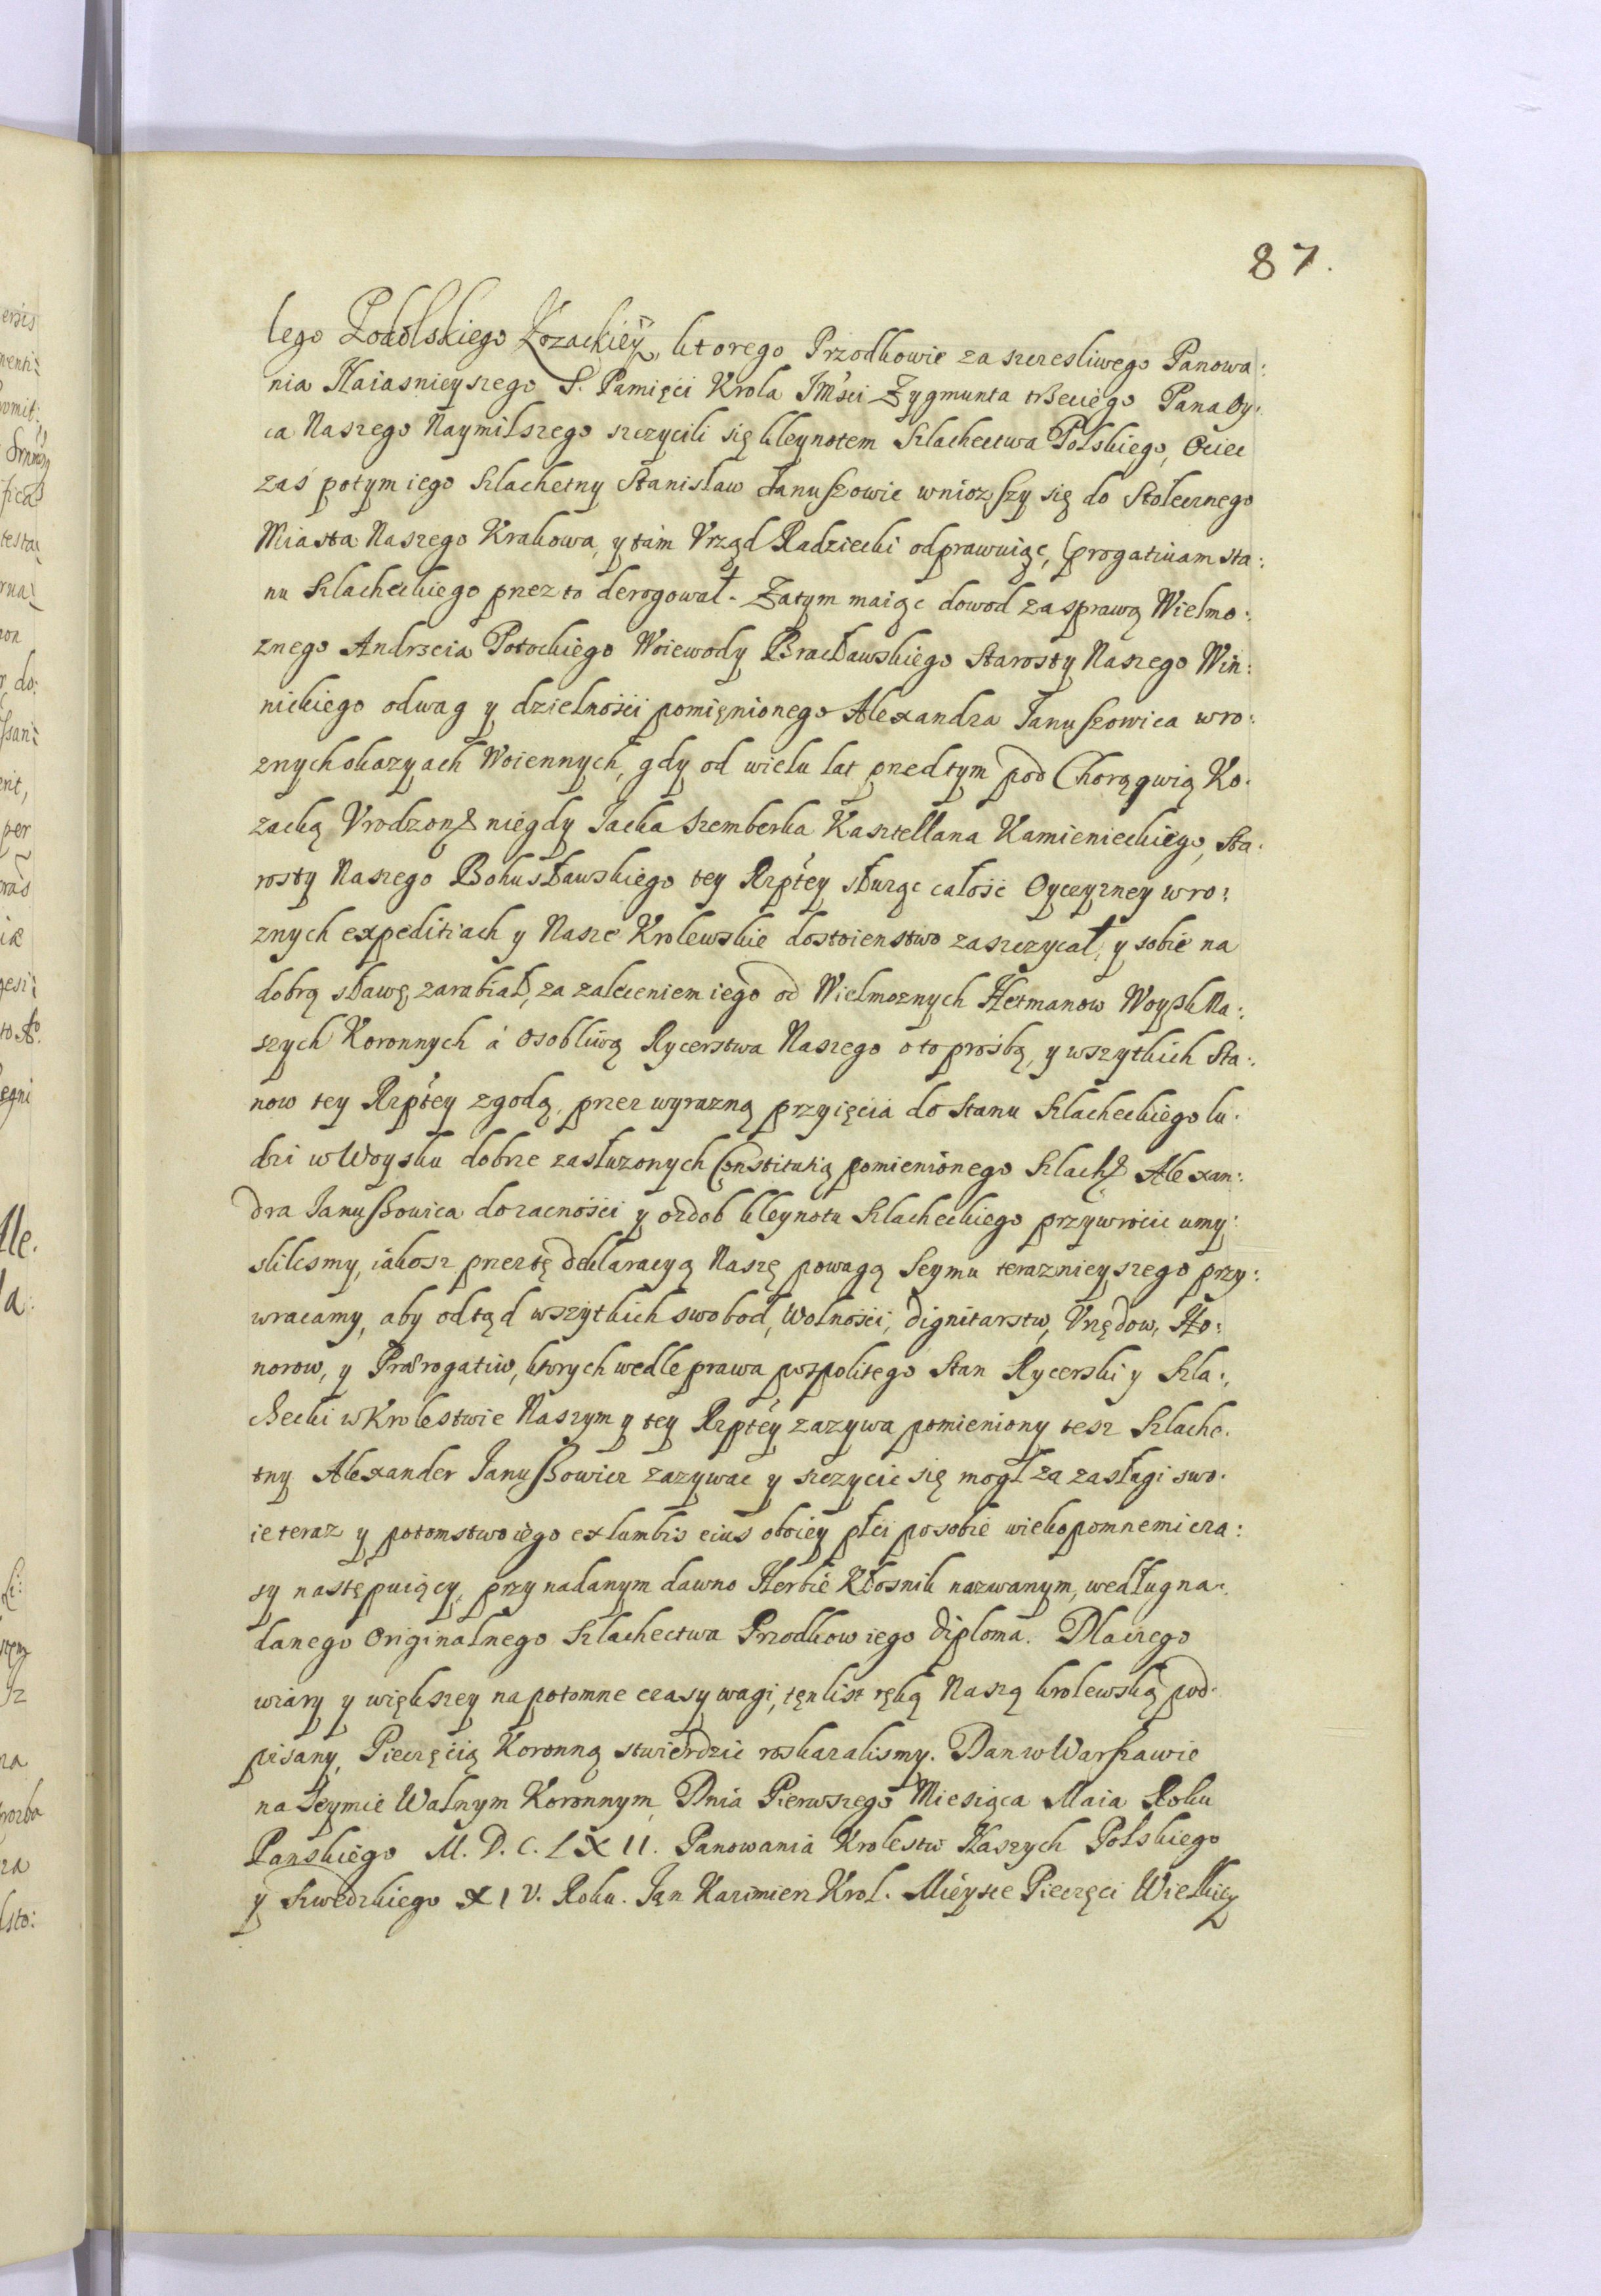 87.
lego Podolskiego Kozackiey, ktorego Przodkowie za szczesliwego Panowa:
nia Naiasnieyszego S. Pamięci Krola JMsci Zygmunta trzeciego Pana Oy:
ca Naszego Naymilszego szczycili się kleynotem Szlachectwa Polskiego, Ociec
zaś potym iego Szlachetny Stanisław Januszowic wniozszy się do Stołecznego
Miasta Naszego Krakowa, y tam Vrząd Radziecki odprawuiąc, prrogatiuam sta:
nu Szlacheckiego przez to derogował. Zatym maiąc dowod za sprawą Wielmo:
znego Andrzeia Potockiego Woiewody Bracławskiego Starosty Naszego Win:
nickiego odwag y dzielności pomięnionego Alexandra Januszowica w ro:
znych okazyach Woiennych, gdy od wielu lat przedtym pod Chorągwią Ko:
zacką Vrodzonę niegdy Jacka Szemberka Kasztellana Kamienieckiego, Sta:
rosty Naszego Bohusławskiego tey Rzptey służąc całość Oyczyzney w ro:
znych expeditiach y Nasze Krolewskie dostoienstwo zaszczycał, y sobie na
dobrą sławę zarabiał, za zaleceniem iego od Wielmoznych Hetmanow Woysk Na:
szych Koronnych á osobliwą Rycerstwa Naszego o to prośbą, y wszytkich Sta:
now tey Rzptey zgodą, przez wyrazną przyięcia do Stanu Szlacheckiego lu:
dzi w Woysku dobrze zasłuzonych Constitutią pomienionego Szlachę Alexan:
dra Januszowica do zacności y ozdob kleynotu Szlacheckiego przywrocic umy:
slilismy, iakosz przez tę deklaracyą Naszę powagą Seymu teraznieyszego przy:
wracamy, aby odtąd wszytkich swobod, Wolności, dignitarstw, Vrzędow, Ho:
norow, y Prærogatiw, ktorych wedle prawa pospolitego Stan Rycerski y Szla:
checki w Krolestwie Naszym y tey Rzptey zazywa pomieniony tesz Szlache:
tny Alexander Januszowicz zazywac y szczycic się mogł za zasługi swo:
ie teraz y potomstwo iego ex lumbis eius oboiey płci po sobie wiekopomnemi cza:
sy następuiący, przy nadanym dawno Herbie Kłosnik nazwanym, według na:
danego Originalnego Szlachectwa Przodkow iego diploma. Dla czego
wiary y większey na potomne czasy wagi, tęn list ręką Naszą krolewską pod:
pisany, Pieczęcią Koronną stwierdzic roskazalismy. Dan w Warszawie
na Seymie Walnym Koronnym, Dnia Pierwszego Miesiąca Maia Roku
Panskiego M. D. C. LXII. Panowania Krolestw Naszych Polskiego
y Szwedzkiego XIV. Roku. Jan Kazimierz Krol. Mieysce Pieczęci Wielkiey